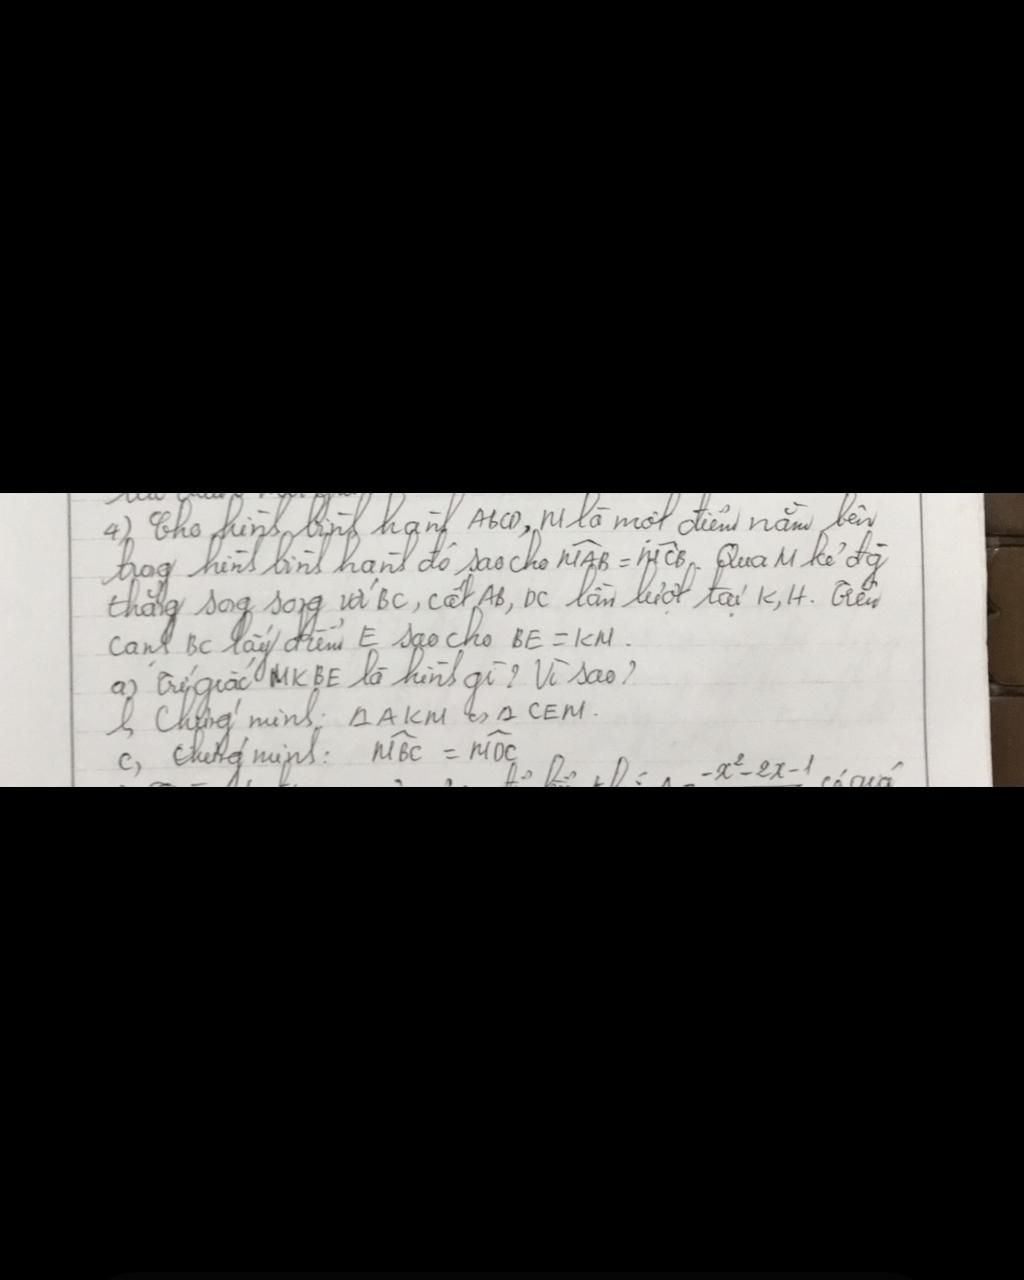 4) Cho hình bình hành ABCD, M là một điểm nằm bên
trog hình bình hành đó sao cho MAB = MCB. Qua M kẻ đg
thẳng sog sog với BC, cắt AB, DC lần lượt tại K, H. Trên
cạnh BC lấy điểm E sao cho BE = KM.
a) Tứ giác MKBE là hình gì? Vì sao?
b, Chứng minh: Δ AKM ∽ Δ CEM.
c, Chứng minh: MBC = MDC
-x²-2x-1